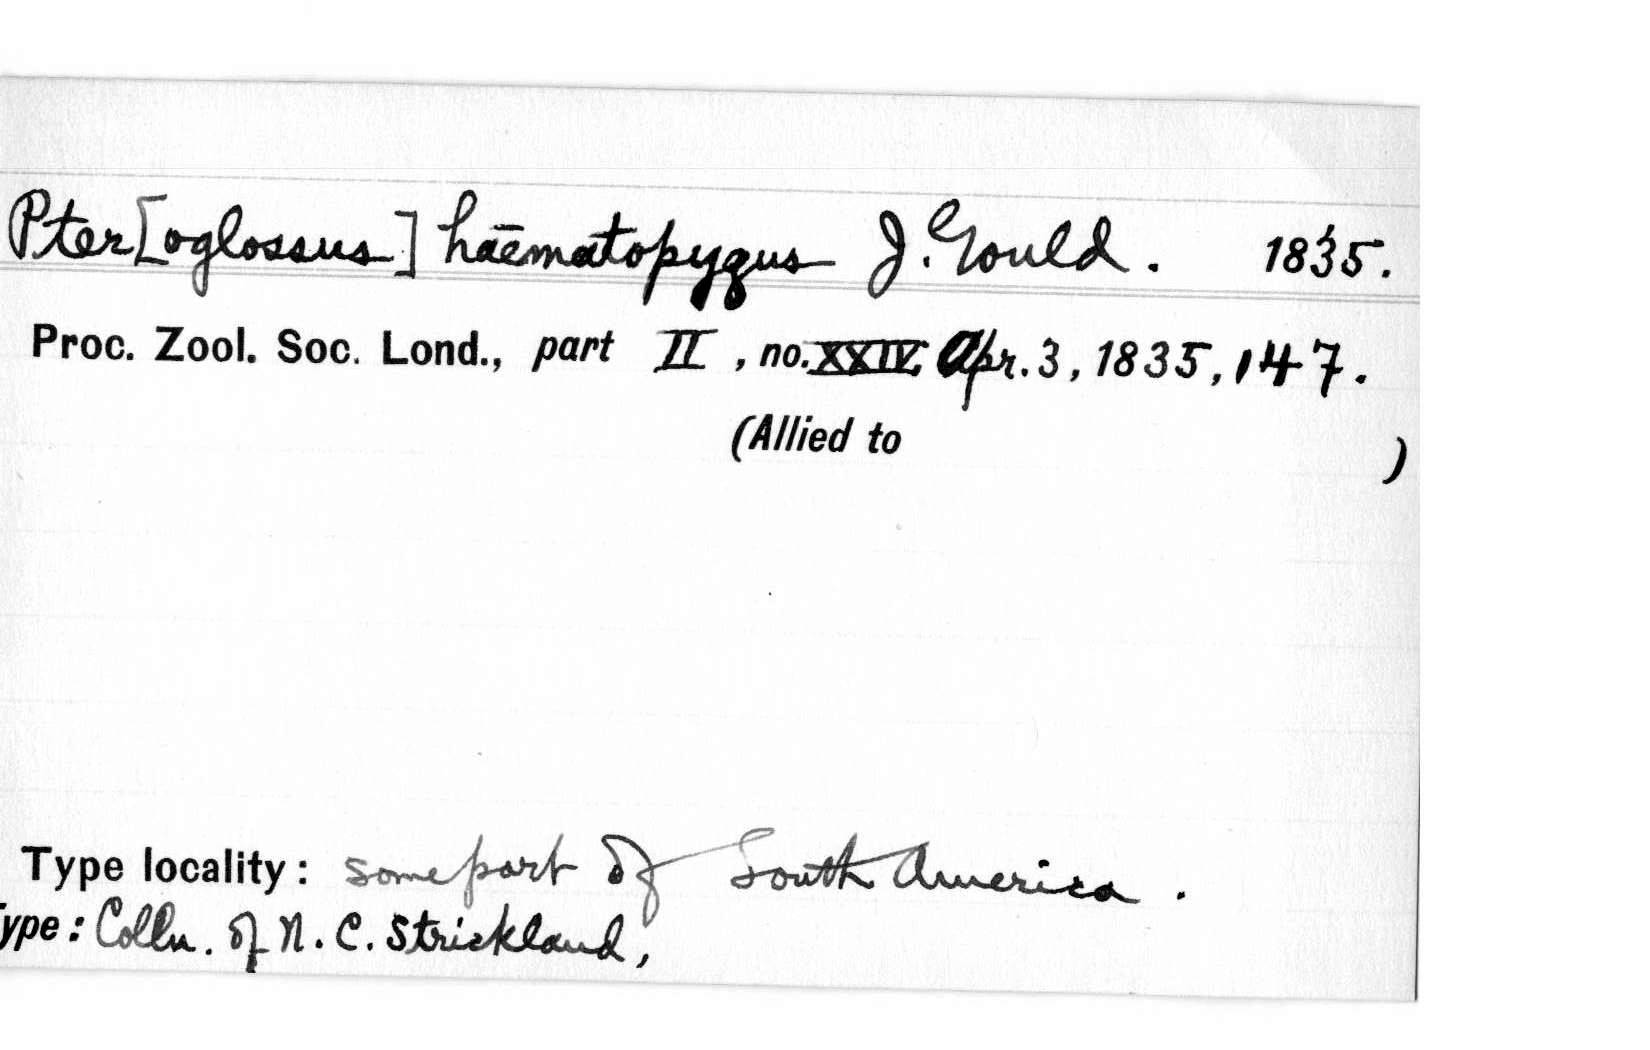 Pter[oglossus] haematopygus J. Gould. 1835.
Proc. Zool. Soc. Lond., part II, no. XXIV, Apr. 3, 1835, 147.
(Allied to )
Type locality: some part of South America.
ype: Colln. of N. C. Strickland,